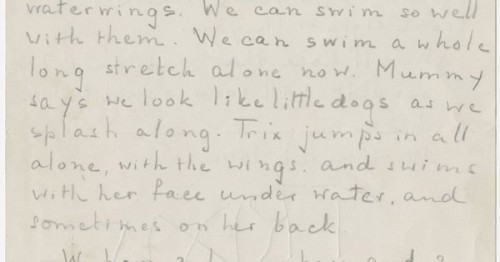 waterwings. We can swim so well
with them. We can swim a whole
long stretch alone now. Mummy
says we look like little dogs as we
splash along. Trix jumps in all
alone, with the wings. and swims
with her face under water, and
sometimes on her back